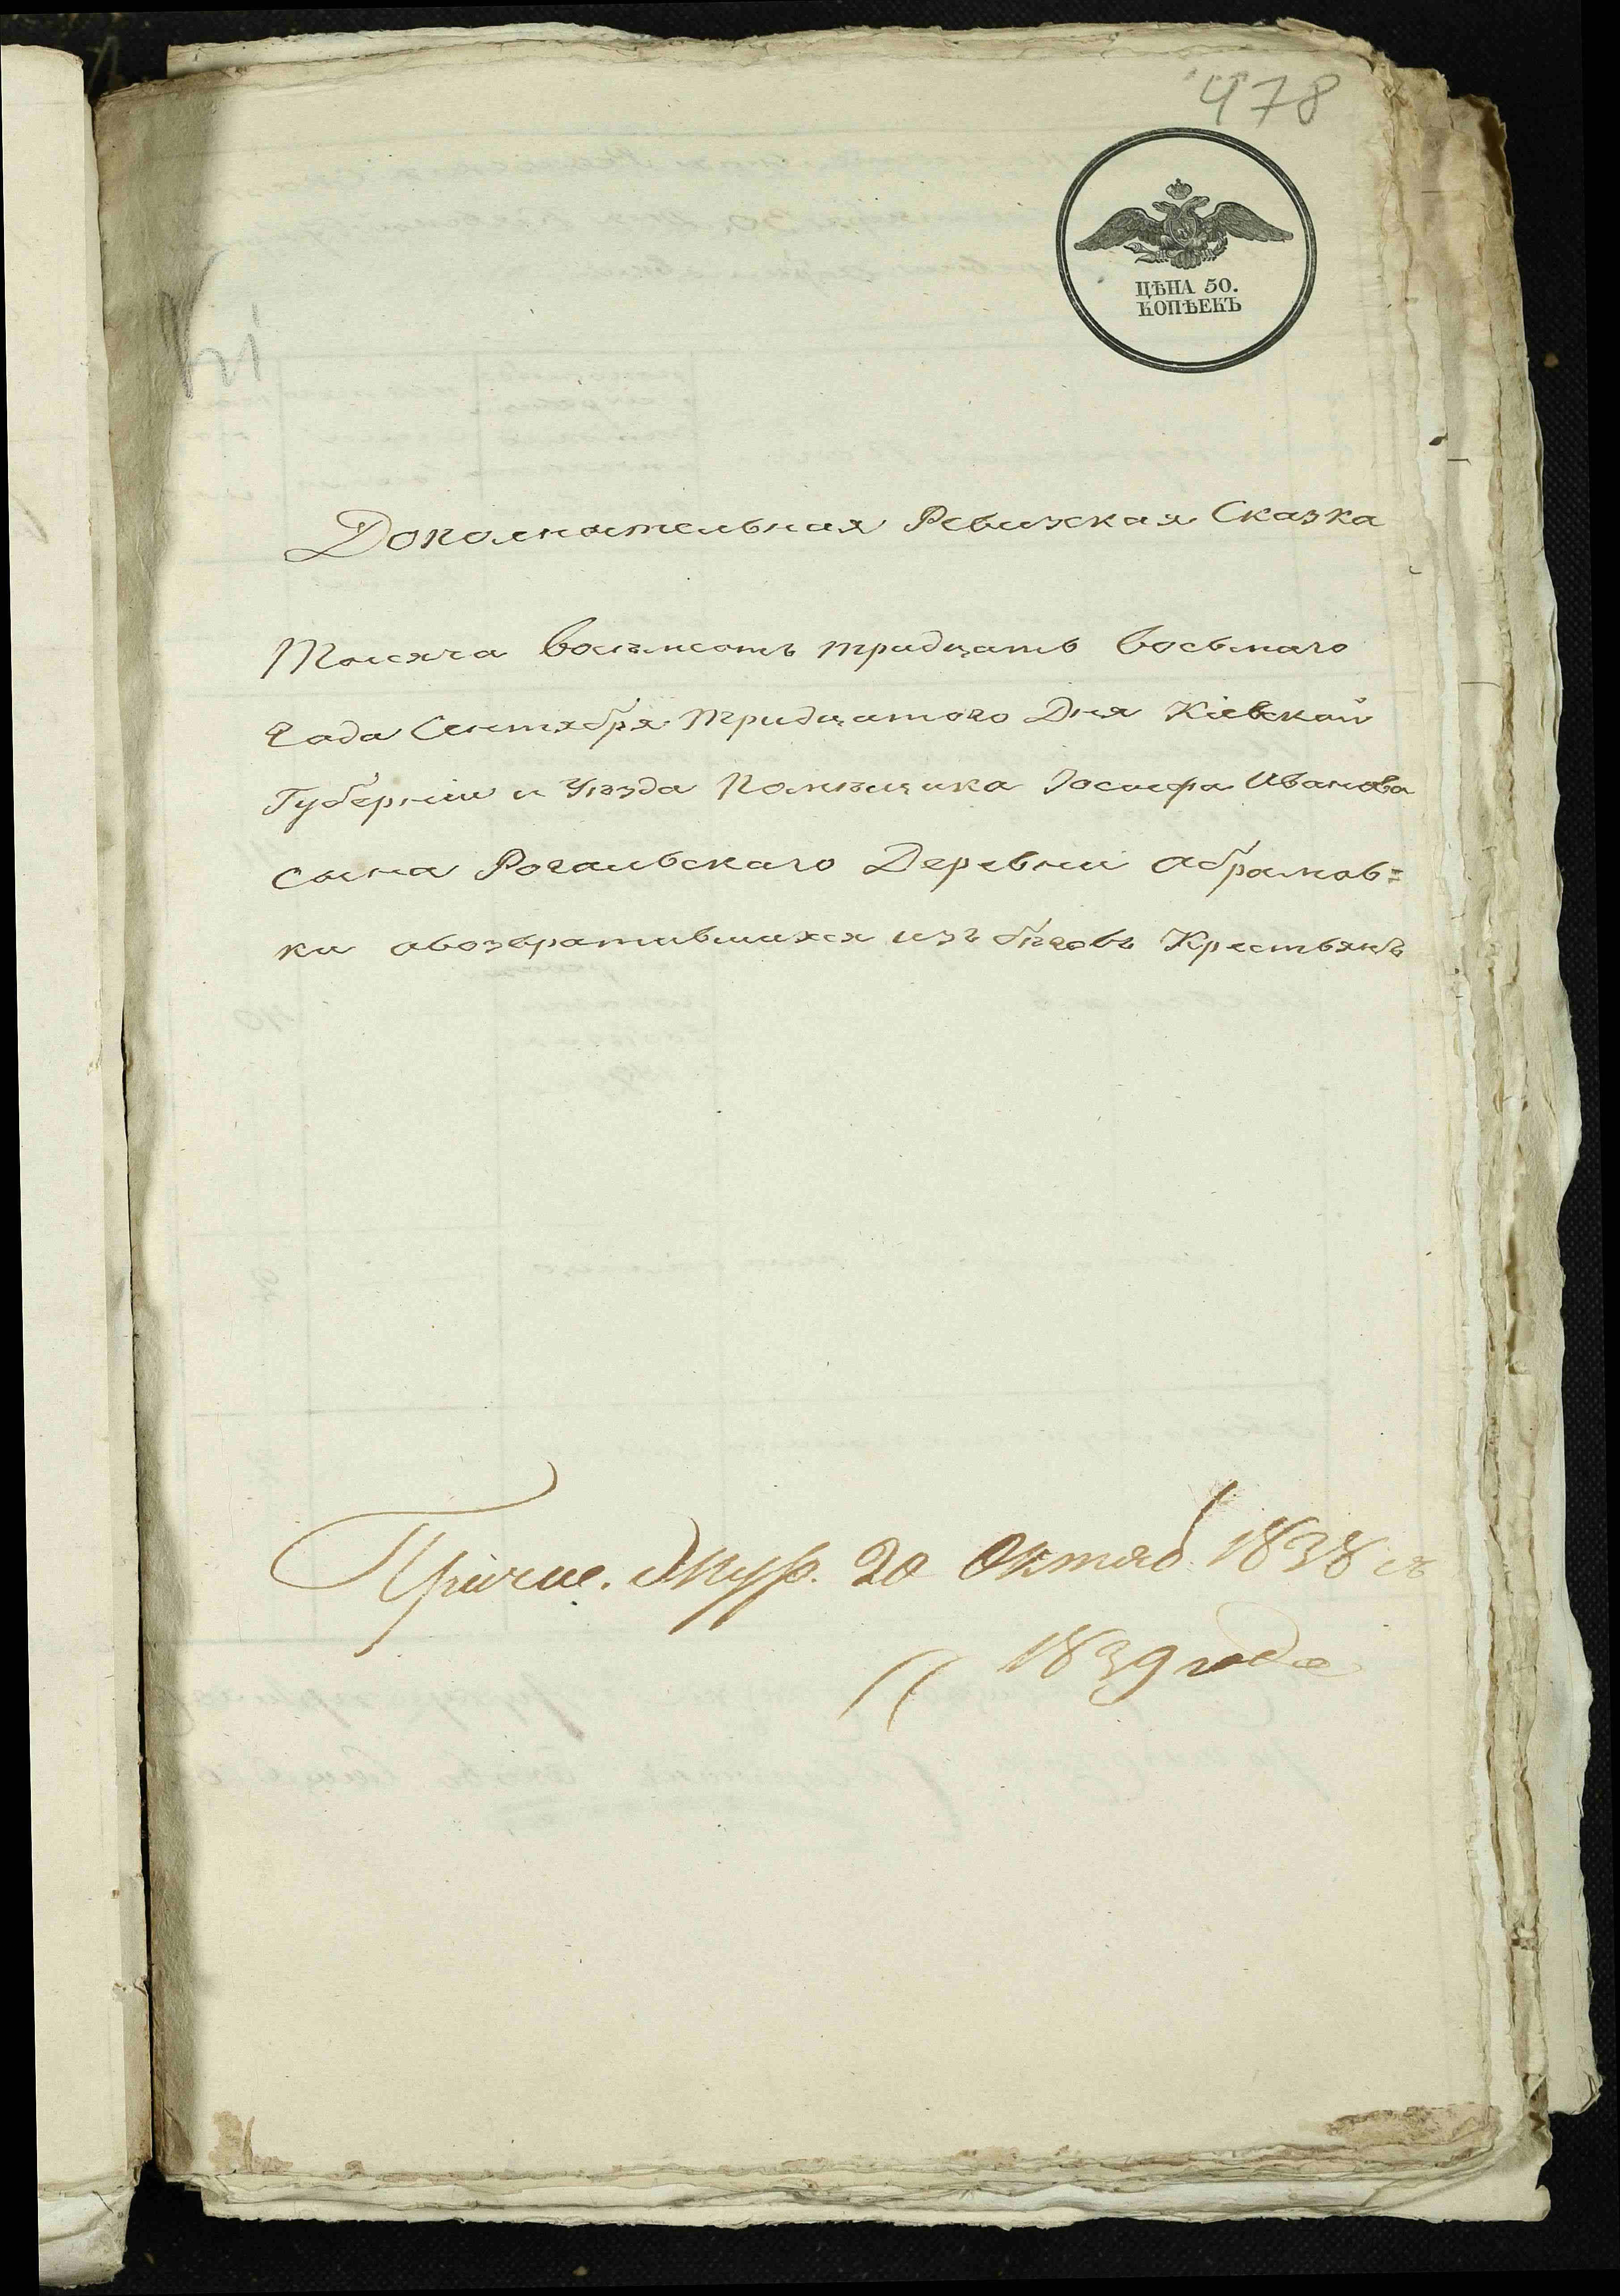 478
ЦѢНА 50.
КОПѢЕКЪ
Дополнительная Ревизкая Сказка
Тысяча восьмсотъ тридцать восьмаго
Года Сентября тридцатого Дня Кіевской
Губерніи и Уѣзда Помѣщика Іосифа Иванова
сына Рогальскаго Деревни Абрамов=
ки овозвратившихся изъ бѣговъ Крестьянъ
20 Октяб. 1838
1839 года